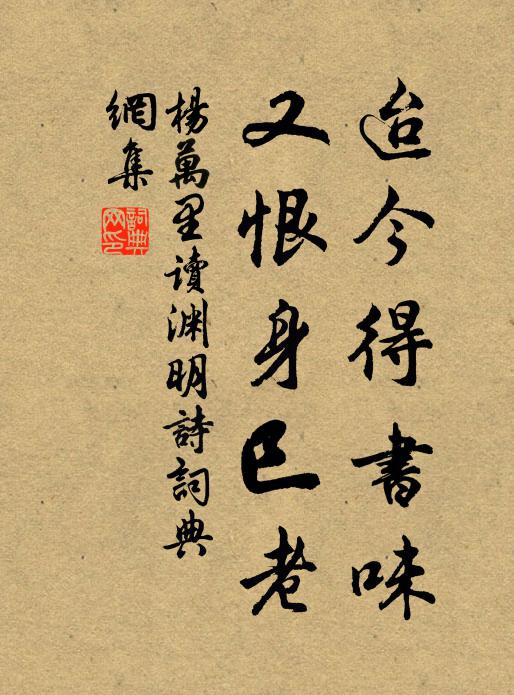 迨今得書味
又恨身已老
楊萬里讀淵明詩詞典
網集
詞典
网印